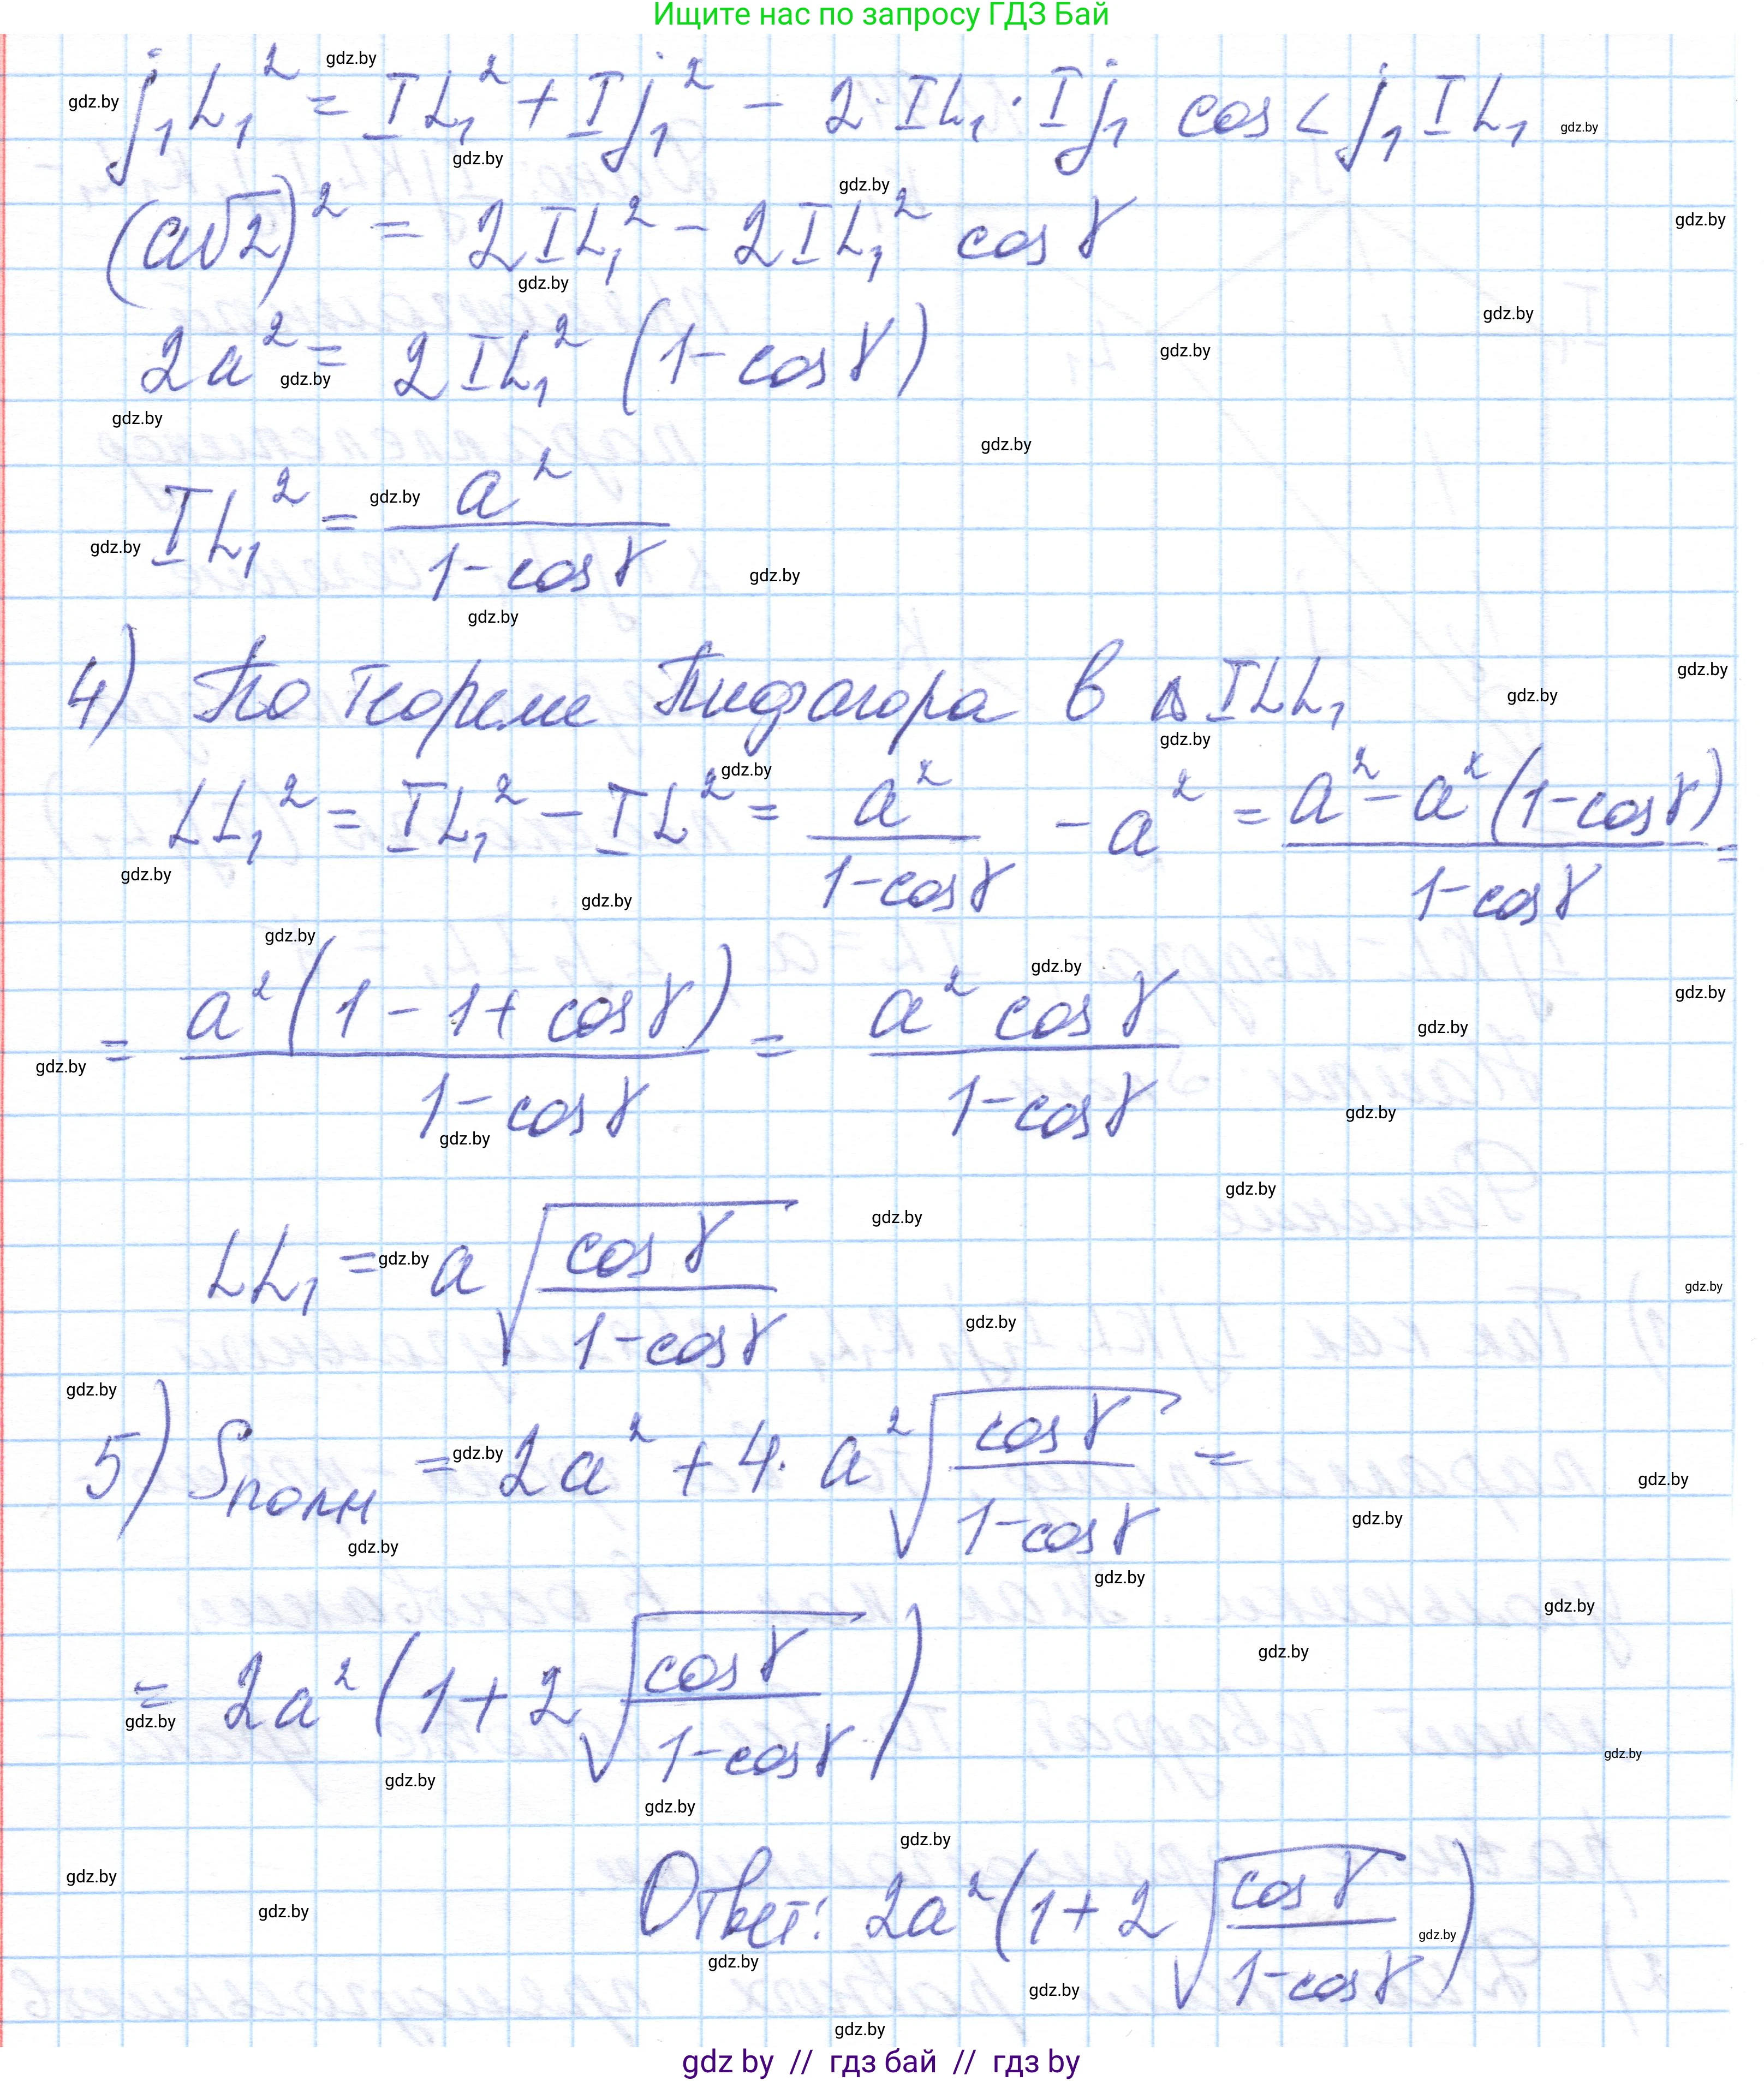 Ищите нас по запросу ГДЗ Бай
j₁L₁² = IL₁² + Ij₁² − 2·IL₁·Ij₁ cos < j₁IL₁
(a√2)² = 2IL₁² − 2IL₁² cos γ
2a² = 2IL₁² (1 − cos γ)
IL₁² = a² / (1 − cos γ)
4) По теореме Пифагора в Δ ILL₁
LL₁² = IL₁² − IL² = a² / (1 − cos γ) − a² = (a² − a² (1 − cos γ)) / (1 − cos γ) =
= a² (1 − 1 + cos γ) / (1 − cos γ) = a² cos γ / (1 − cos γ)
LL₁ = a √(cos γ / (1 − cos γ))
5) Sполн = 2a² + 4·a² √(cos γ / (1 − cos γ)) =
= 2a² (1 + 2 √(cos γ / (1 − cos γ)))
Ответ: 2a² (1 + 2 √(cos γ / (1 − cos γ)))
gdz by // гдз бай // гдз by